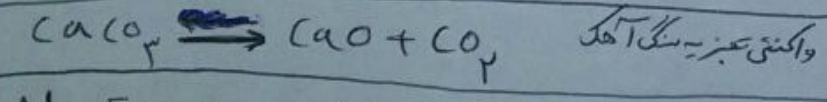 CaCO₃ → CaO + CO₂ واکنش تجزیه سنگ آهک